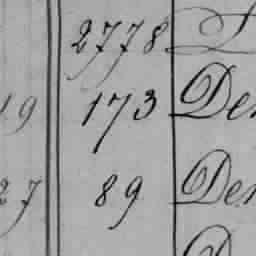 2778
19 173 Den
27 89 Den